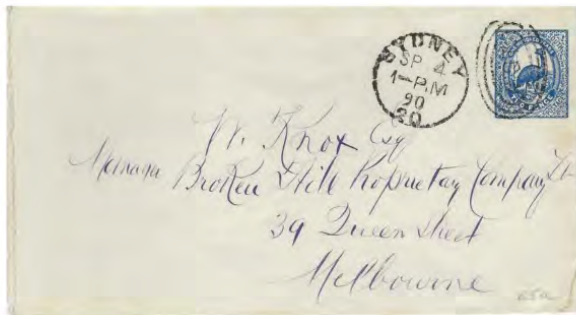 SYDNEY
SP 4
1-P.M
90
20
W. Knox Esq
Manager Broken Hill Proprietary Company Ld
39 Queen Street
Melbourne